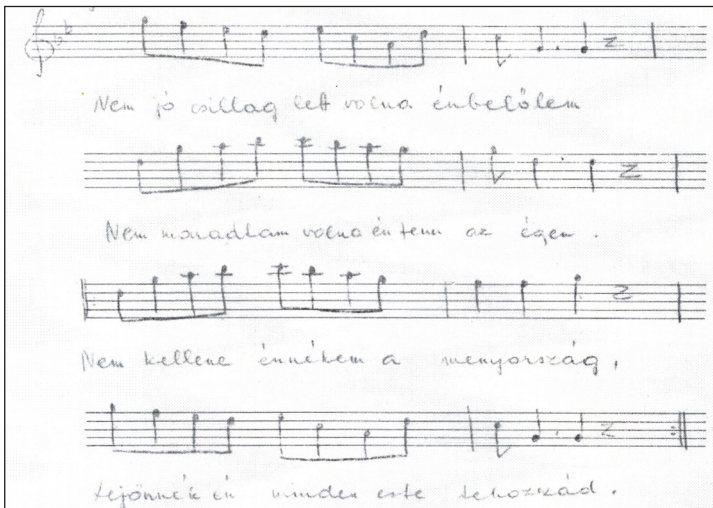 Nem jó csillag lett volna énbelőlem
Nem maradtam volna én fenn az égen.
Nem kellene énnékem a menyország,
Lejönnék én minden este tehozzád.